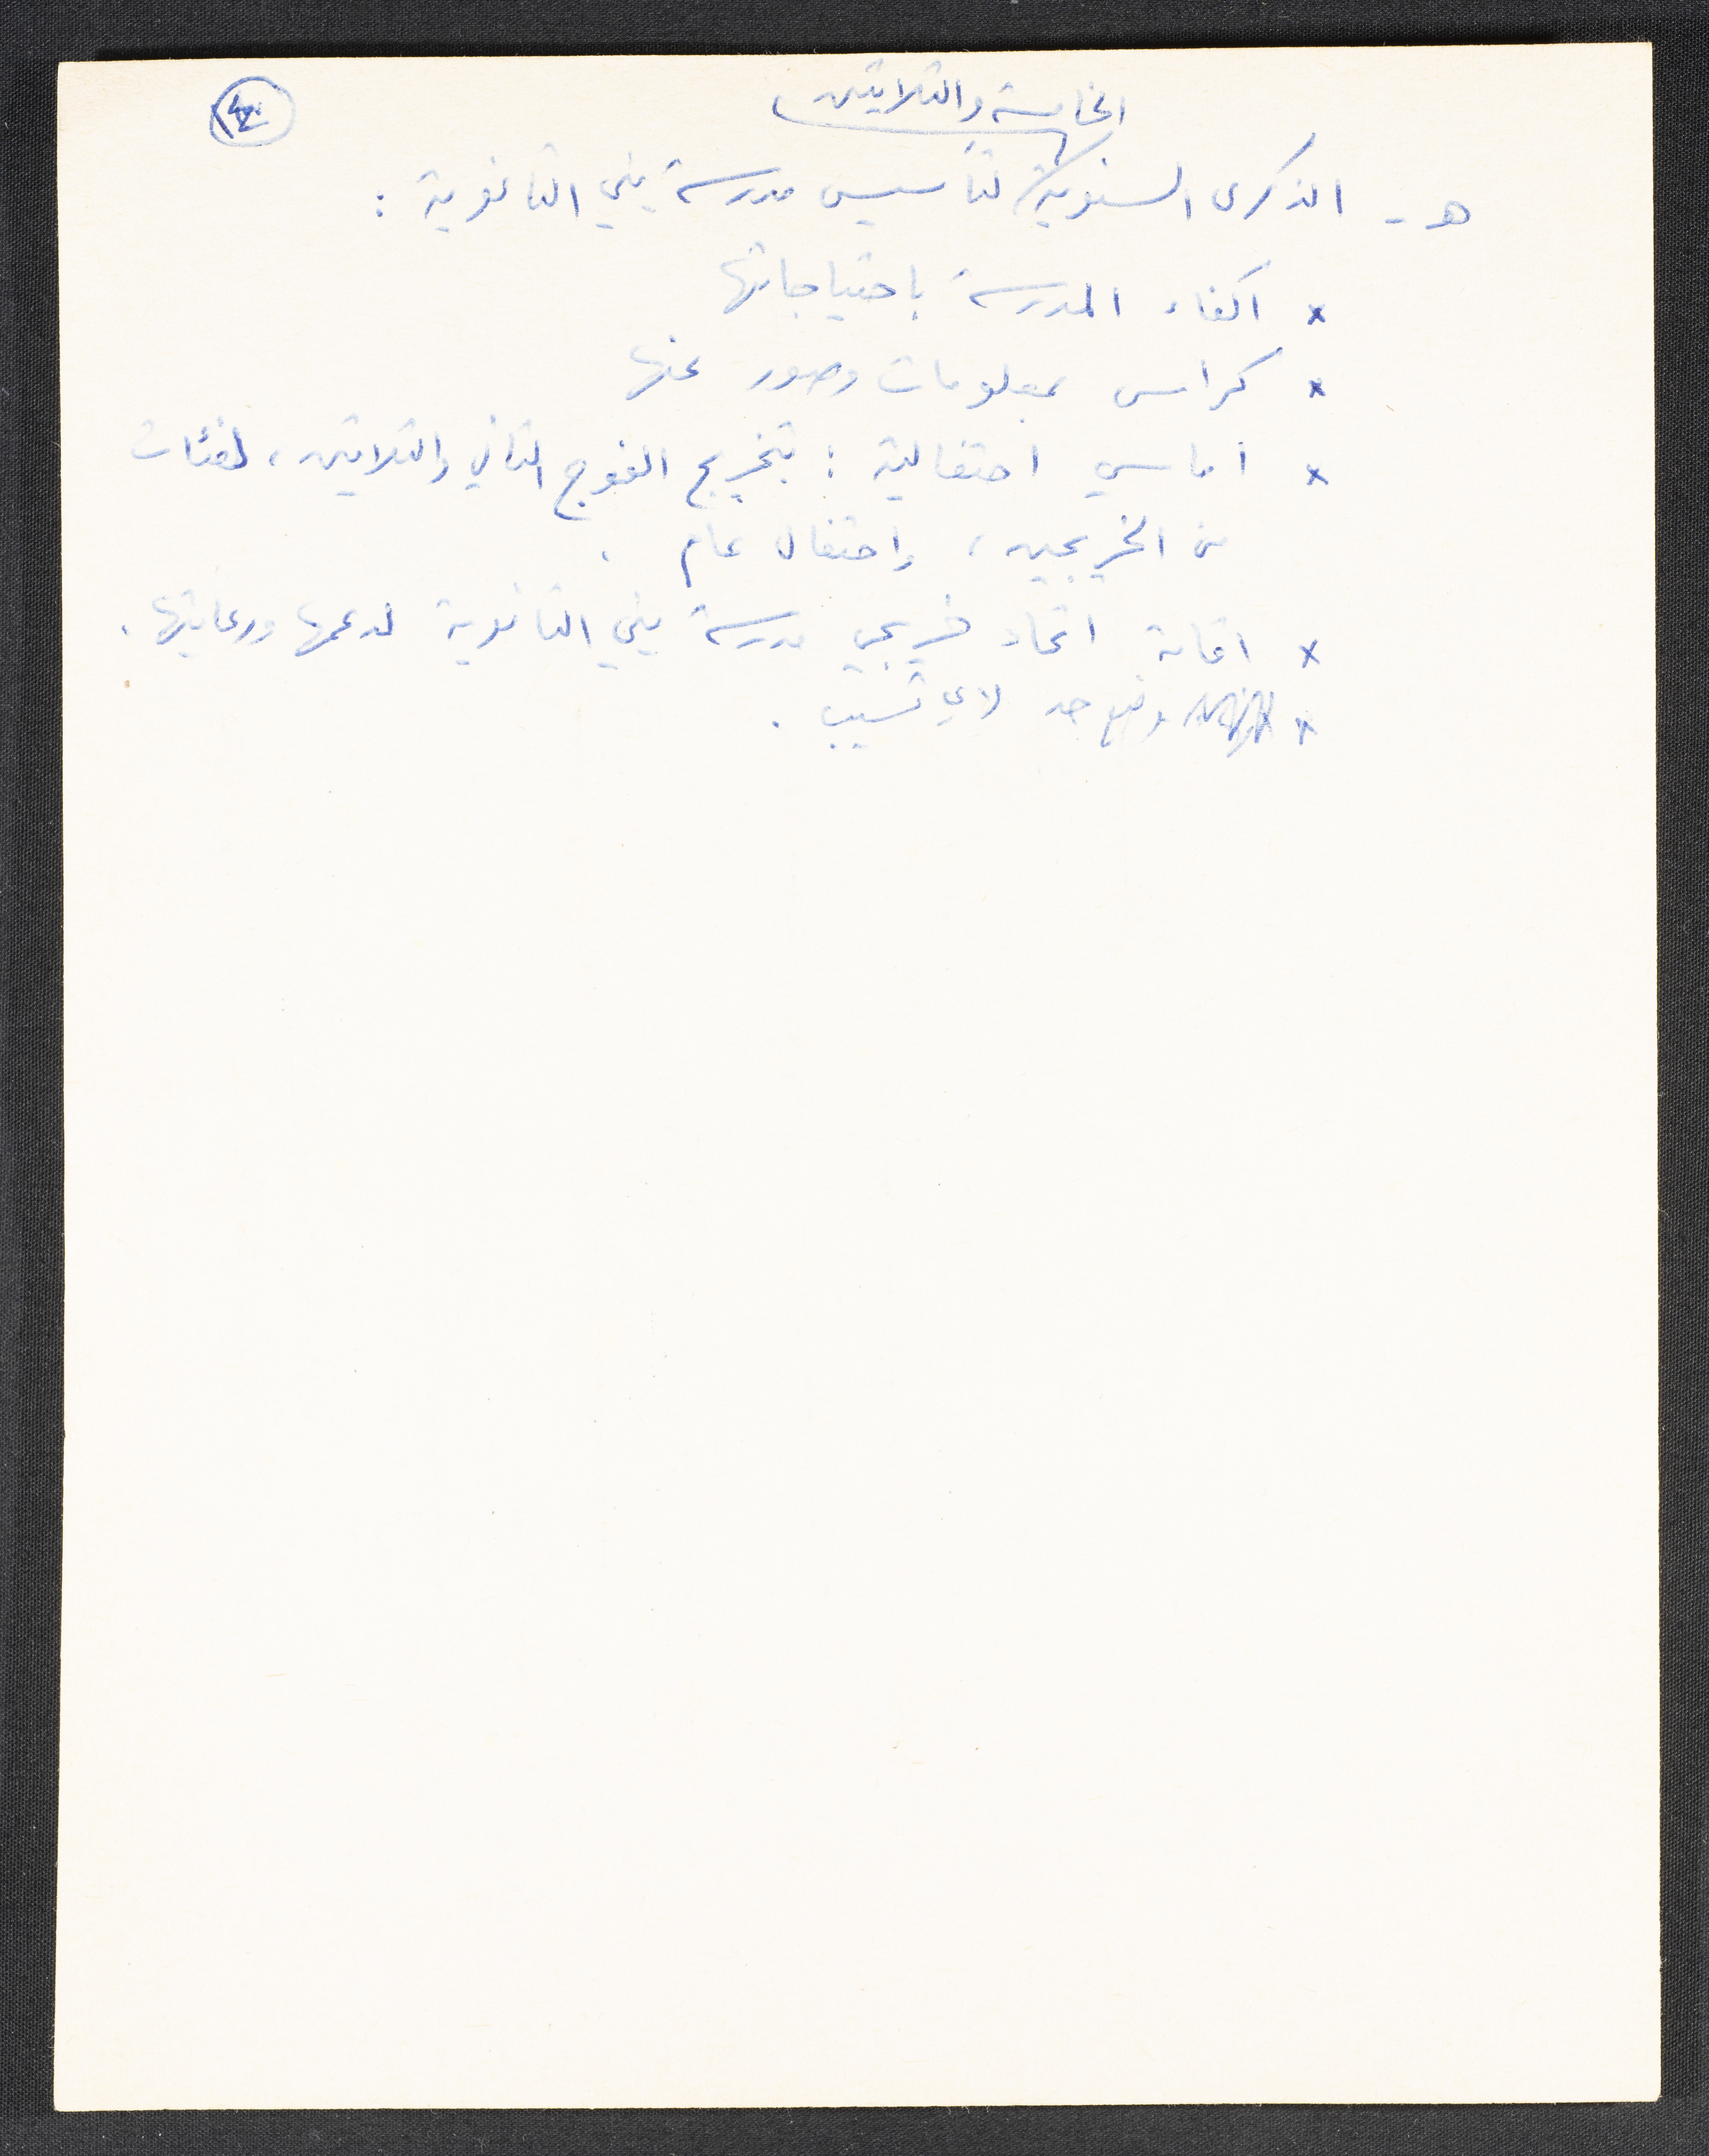 الخامسة والثلاثين
هـ - الذكرى السنوية لتأسيس مدرسة يني الثانوية :
x اكفاء المدرسة باحتياجاتها
x كراس بمعلومات وصور عنها
x أماسي احتفالية : بتخريج الفوج الثاني والثلاثين ، لفئات
من الخريجين ، واحتفال عام .
x اقامة اتحاد خريجي مدرسة يني الثانوية لدعمها ورعايتها .
x وضع حد لاي تسيب .